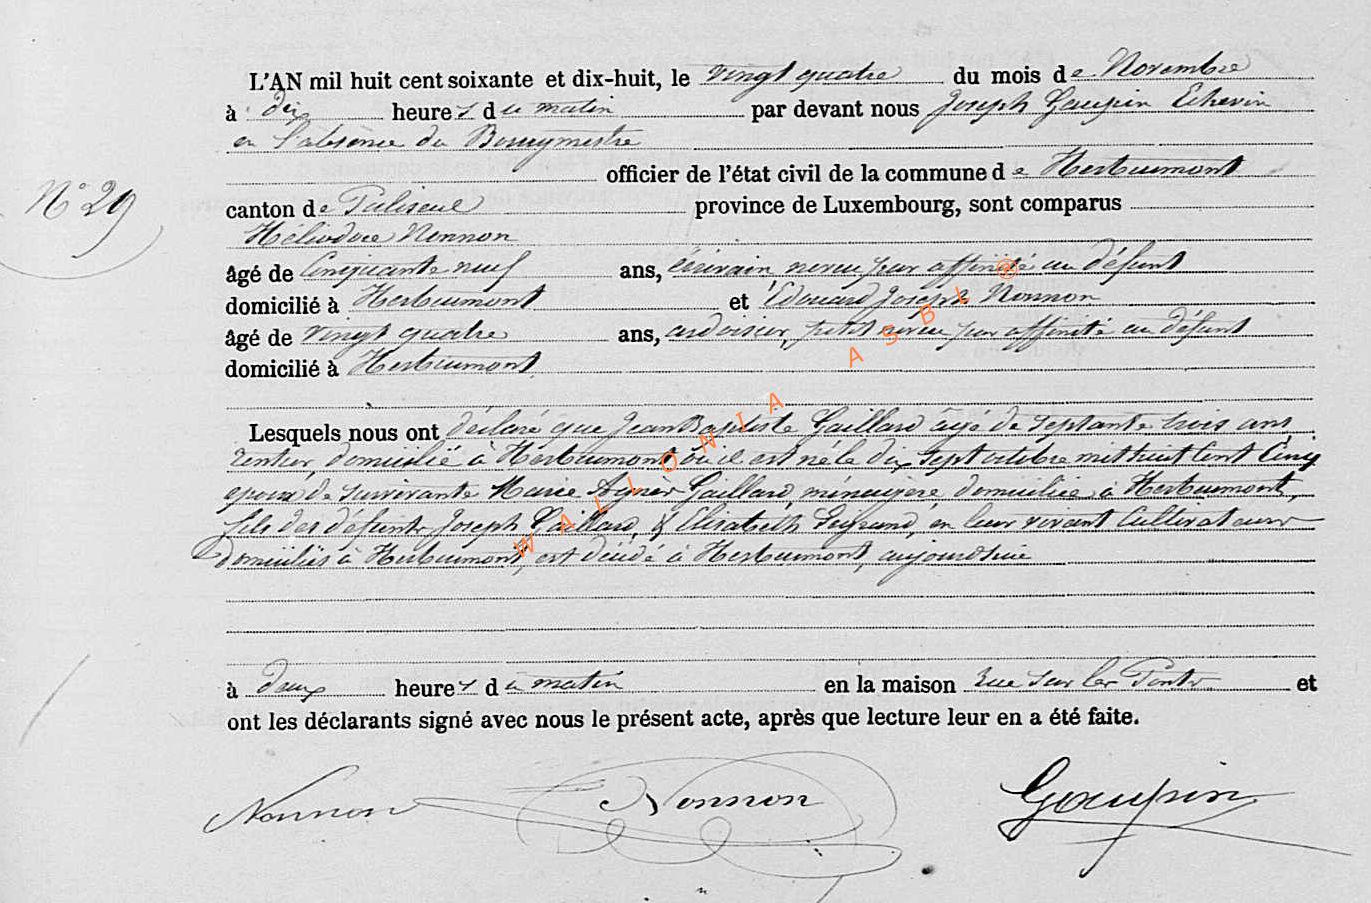 L'AN mil huit cent soixante et dix-huit, le vingt quatre du mois de Novembre
à dix heures du matin par devant nous Joseph Goupin Echevin
en l'absence du Bourgmestre
officier de l'état civil de la commune de Herbeumont
N° 29
canton de Paliseul province de Luxembourg, sont comparus
Héliodore Nonnon
âgé de Cinquante neuf ans, écrivain neveu par affinité au défunt
domicilié à Herbeumont et Edouard Joseph Nonnon
âgé de vingt quatre ans, ardoisier, petit neveu par affinité au défunt
domicilié à Herbeumont
Lesquels nous ont déclaré que Jean Baptiste Gaillard âgé de septante trois ans
rentier, domicilié à Herbeumont où il est né le dix sept octobre mil huit Cent Cinq
epoux de survivante Marie Agnès Gaillard, ménagère domiciliée à Herbeumont,
fils des défunts Joseph Gaillard, & Elisabeth en leur vivant Cultivateurs
Domiciliés à Herbeumont, est décédé à Herbeumont, aujourd'hui
à deux heures du matin en la maison Rue sur les Ponts et
ont les déclarants signé avec nous le présent acte, après que lecture leur en a été faite.
Nonnon Nonnon Goupin
WALLONIA ASBL ®